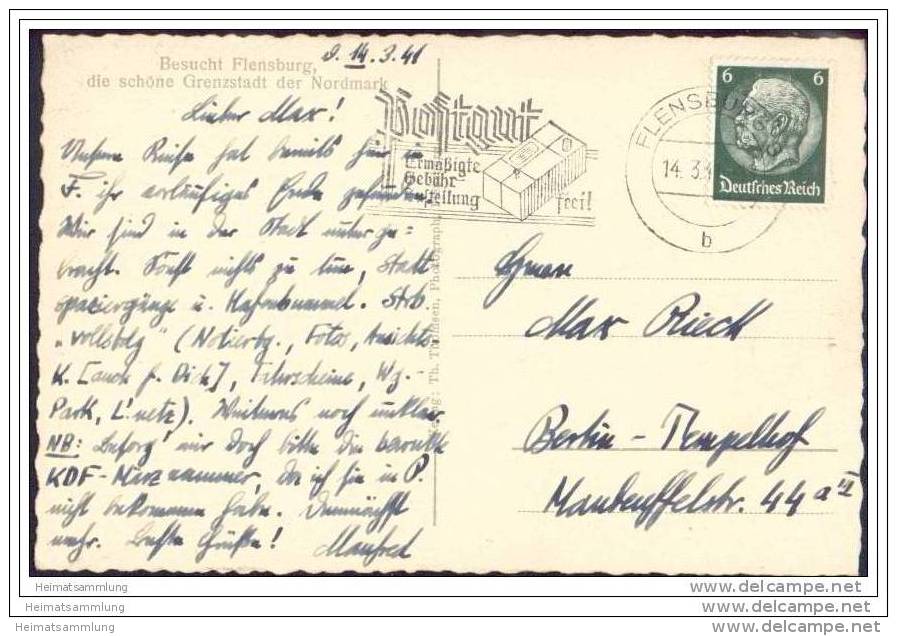 Besucht Flensburg,
die schöne Grenzstadt der Nordmark
d. 14.3.41
Lieber Max!
Unsere Reise hat bereits hier in
F. ihr vorläufiges Ende gefunden.
Wir sind in der Stadt unterge=
bracht. Sonst nichts zu tun, statt
spaziergänge u. Hafenbummel. Strb.
"vollstdg" (Notierbg., Fotos, Ansichts-
K. [auch f. Dich], Fahrscheine, Wg.-
Park, L'netz). Weiteres noch unklar.
NB: Besorg' mir doch bitte die
KDF-Märznummer, da ich sie in P.
nicht bekommen habe. Demnächst
mehr. Beste Grüße! Manfred
Postgut
Ermäßigte
Gebühr
Zustellung frei!
FLENSBURG
14. 3.
b
6 6
Deutsches Reich
Th. Thomsen,
Herrn
Max Rieck
Berlin-Tempelhof
Manteuffelstr. 44a II
Heimatsammlung
Heimatsammlung
Heimatsammlung
www.delcampe.net
www.delcampe.net
www.delcampe.net